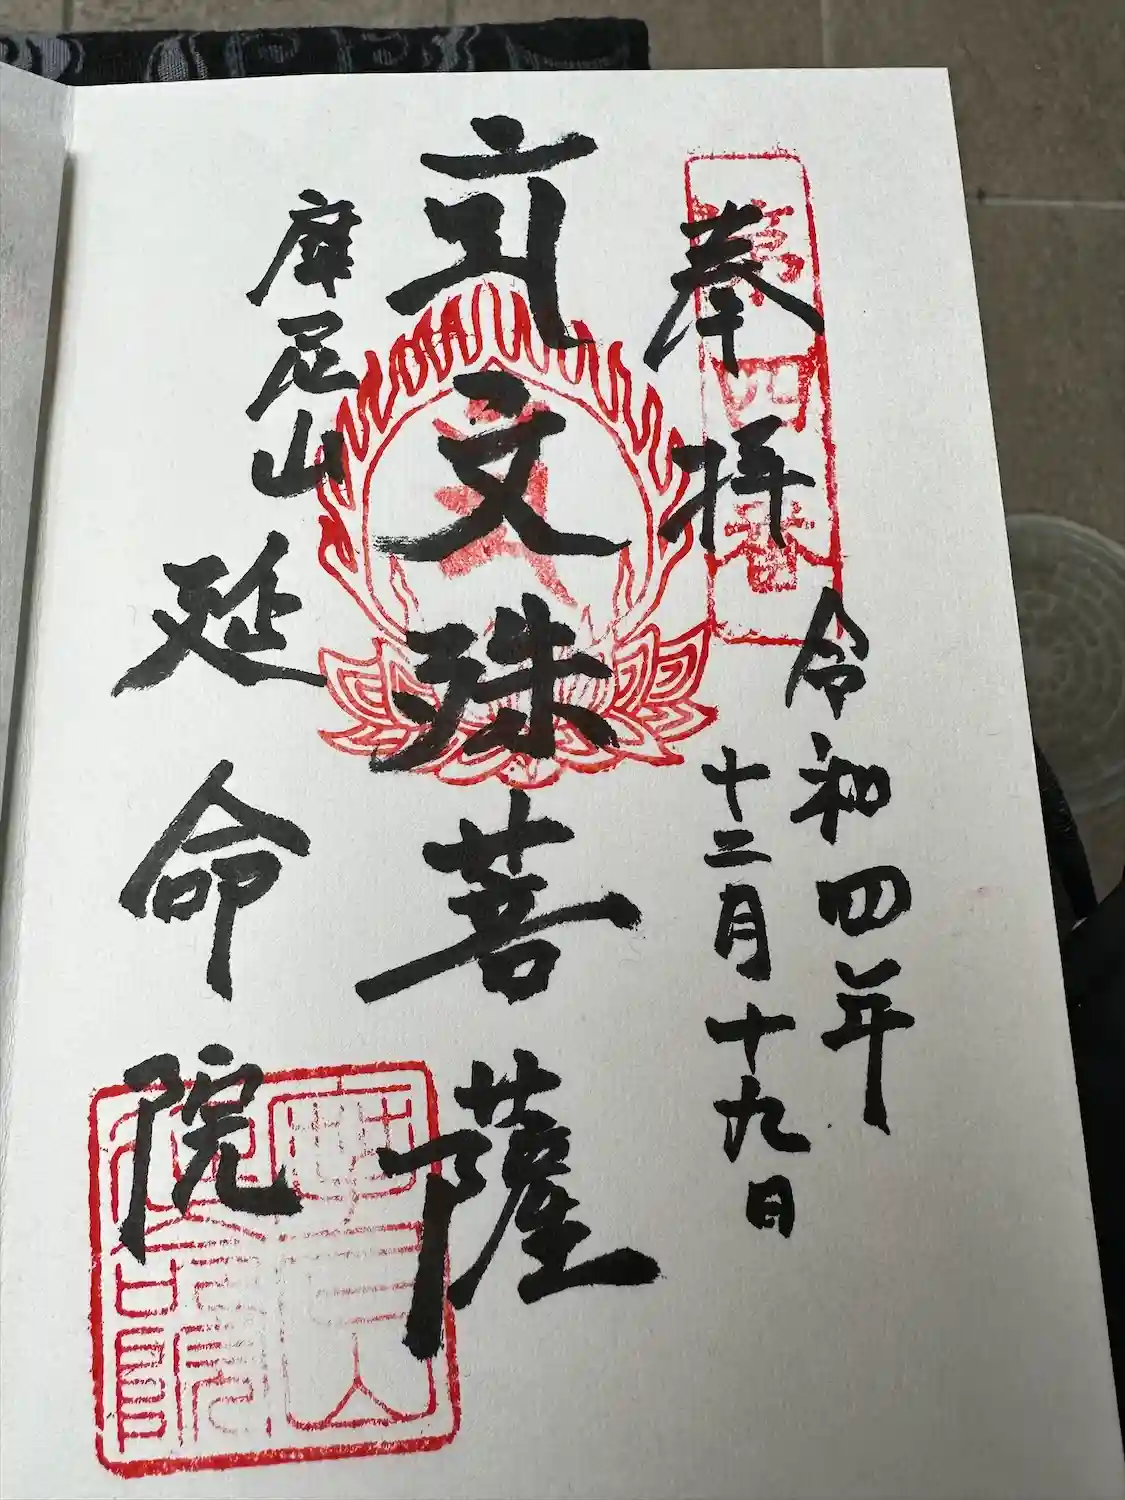 第四番
奉拝
令和四年
十二月十九日
文殊菩薩
摩尼山
延命院